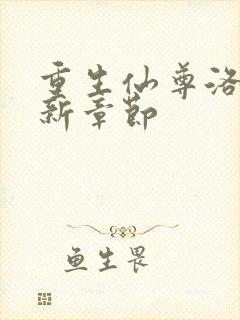 重生仙尊洛
新章節
鱼生畏